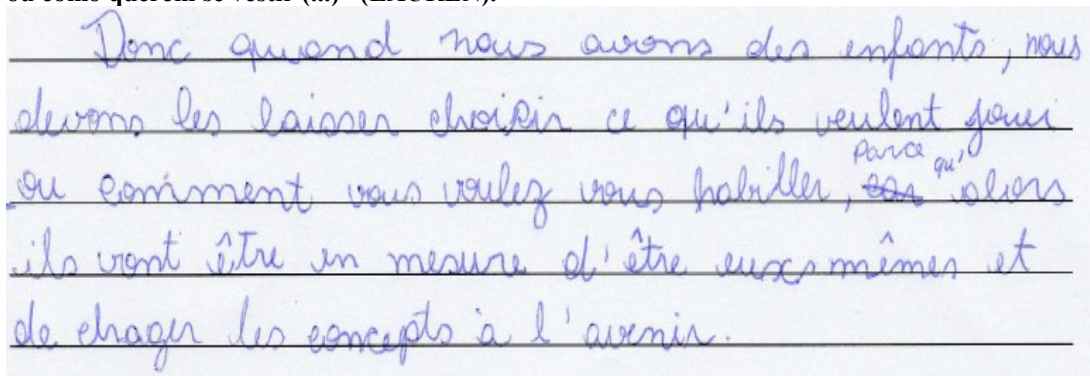 ou como querem se vestir (...)" (LAUTIEN).
Donc quand nous avons des enfants, nous
devons les laisser choisir ce qu'ils veulent jouer
ou comment vous voulez vous habiller, parce qu' alors
ils vont être en mesure d'être euxs mêmes et
de chager les concepts à l'avenir.